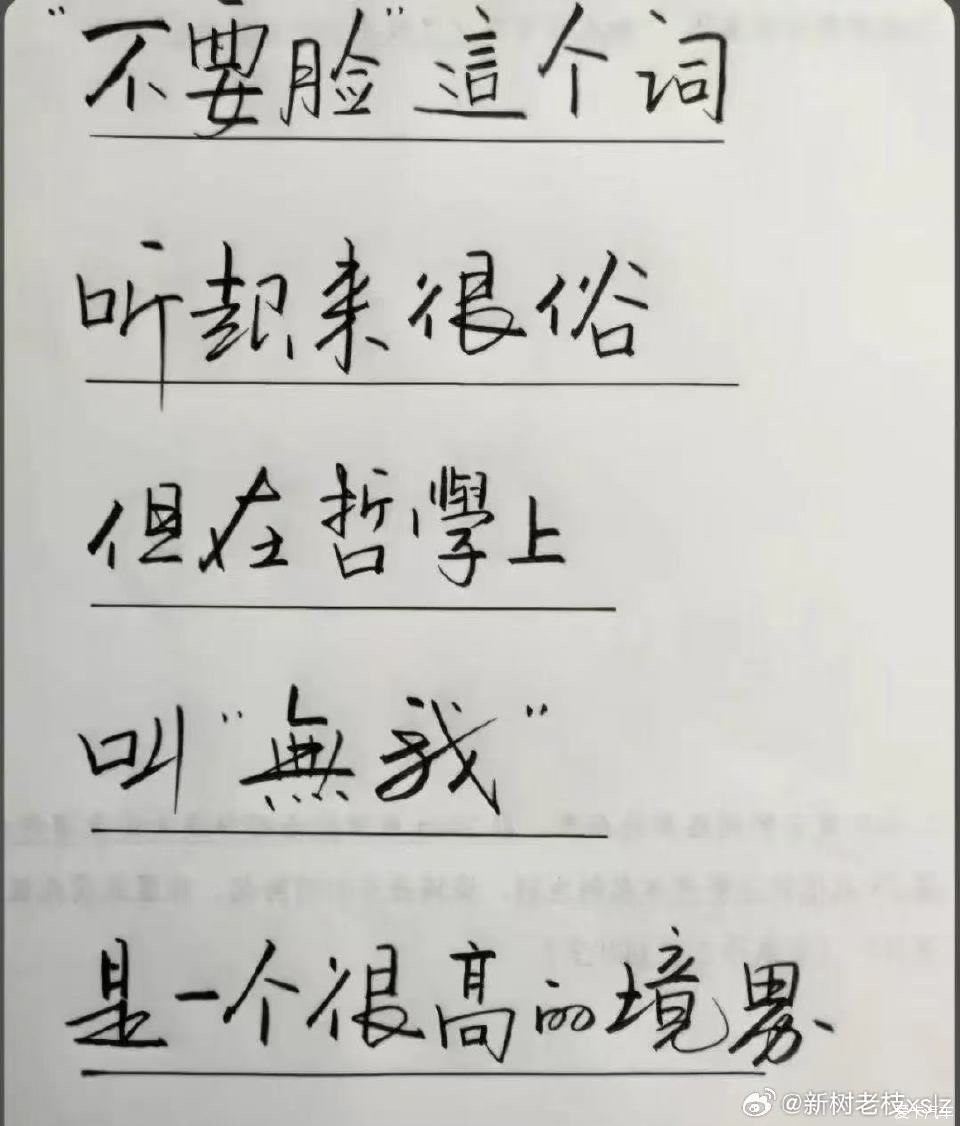 “不要脸”這个词
听起来很俗
但在哲學上
叫“無我”
是一个很高的境界
@新树老枝xslz
爱卡汽车